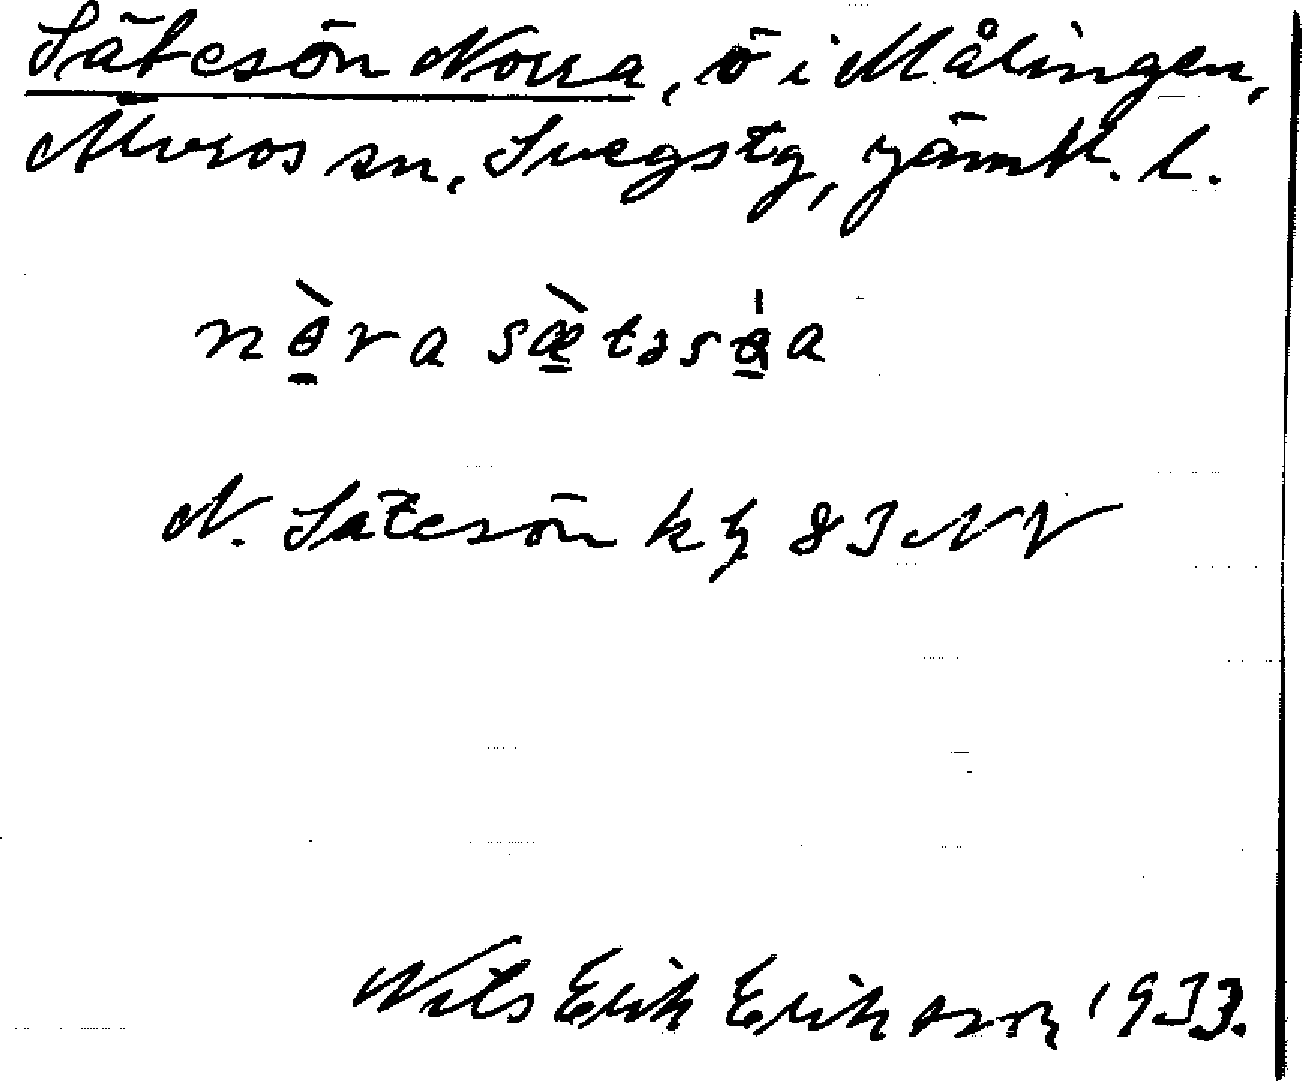 Sätesön Norra, ö i Målingen,
Älvros sn, Svegs tg, Jämtl. l.
nòra sæ̀təsǿa
N. Sätesön kbl 83 NV
Nils Erik Eriksson 1933.